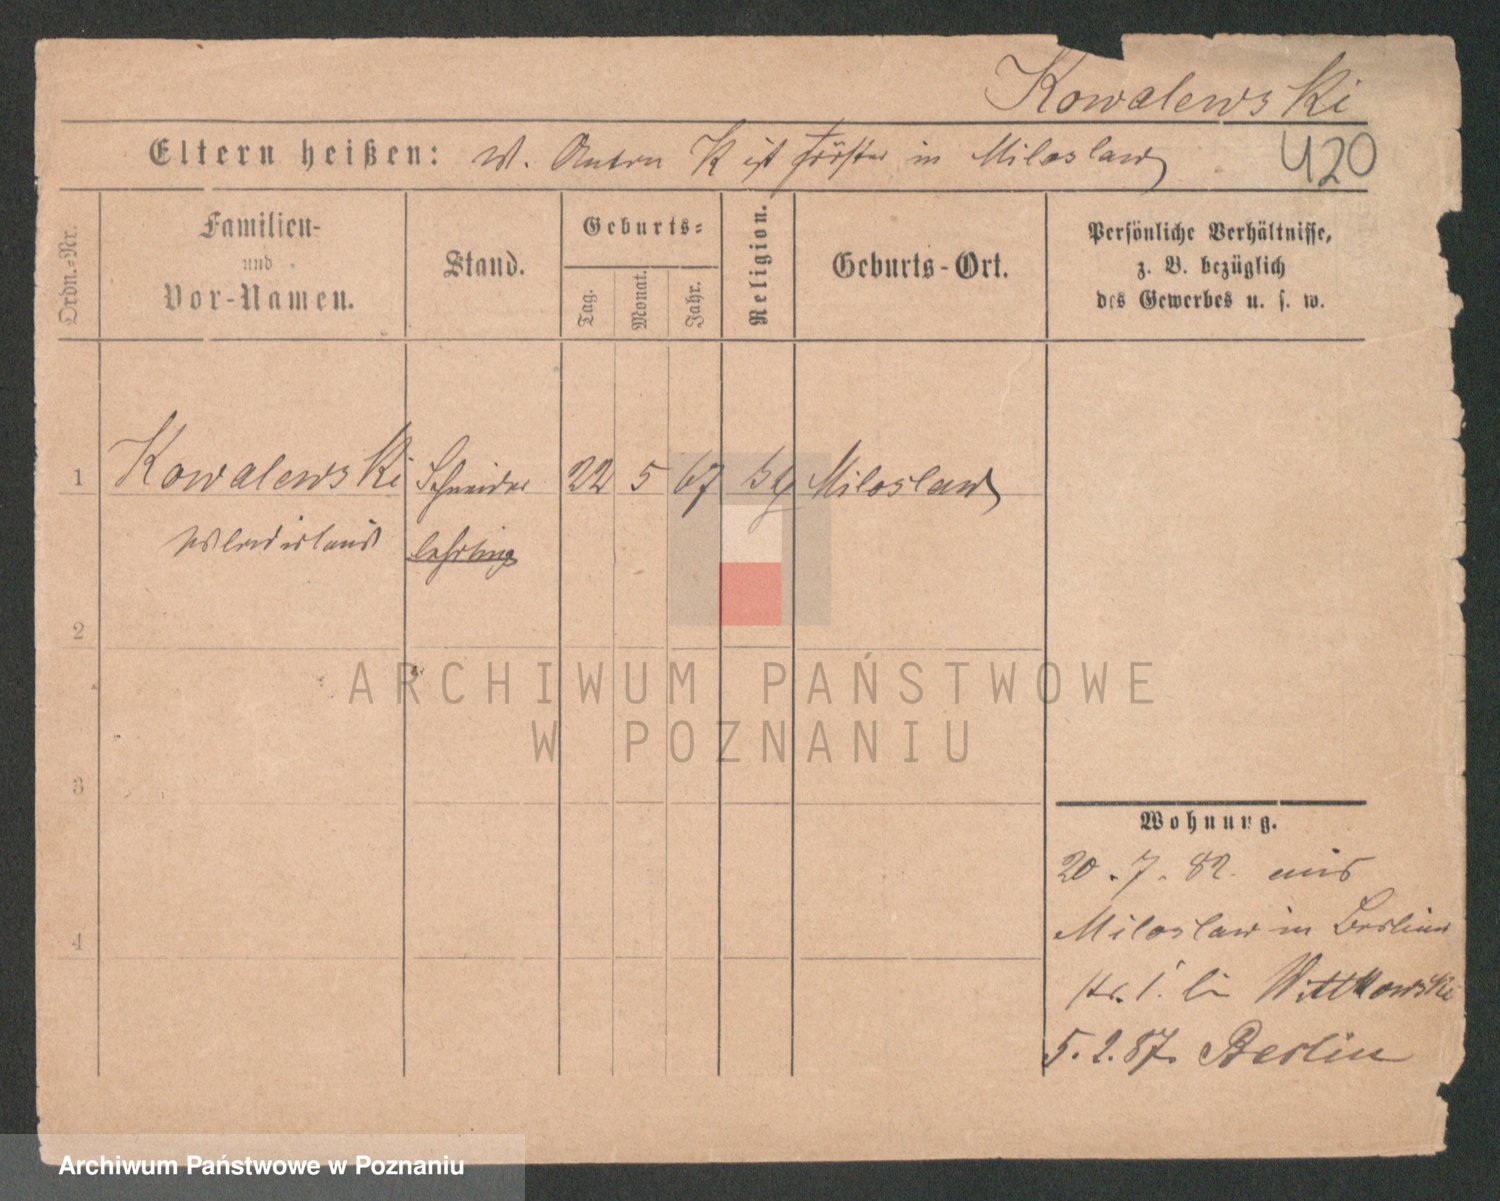 Kowalewski
Eltern heißen: W. Anton K ist Förster in Miloslaw
420
Ordn.-Nr.
Familien-
und
Vor-Namen.
Stand.
Geburts-
Tag.
Monat.
Jahr.
Religion.
Geburts-Ort.
Persönliche Verhältnisse,
z. B. bezüglich
des Gewerbes u. s. w.
1
Kowalewski
Schneider
22
5
67
Miloslaw
Wladislaus
lehrling
2
3
4
Wohnung.
20.7.82. aus
Miloslaw in Berliner
str. 1. bei Wittkowski
5.2.87. Berlin
ARCHIWUM PAŃSTWOWE
W POZNANIU
Archiwum Państwowe w Poznaniu